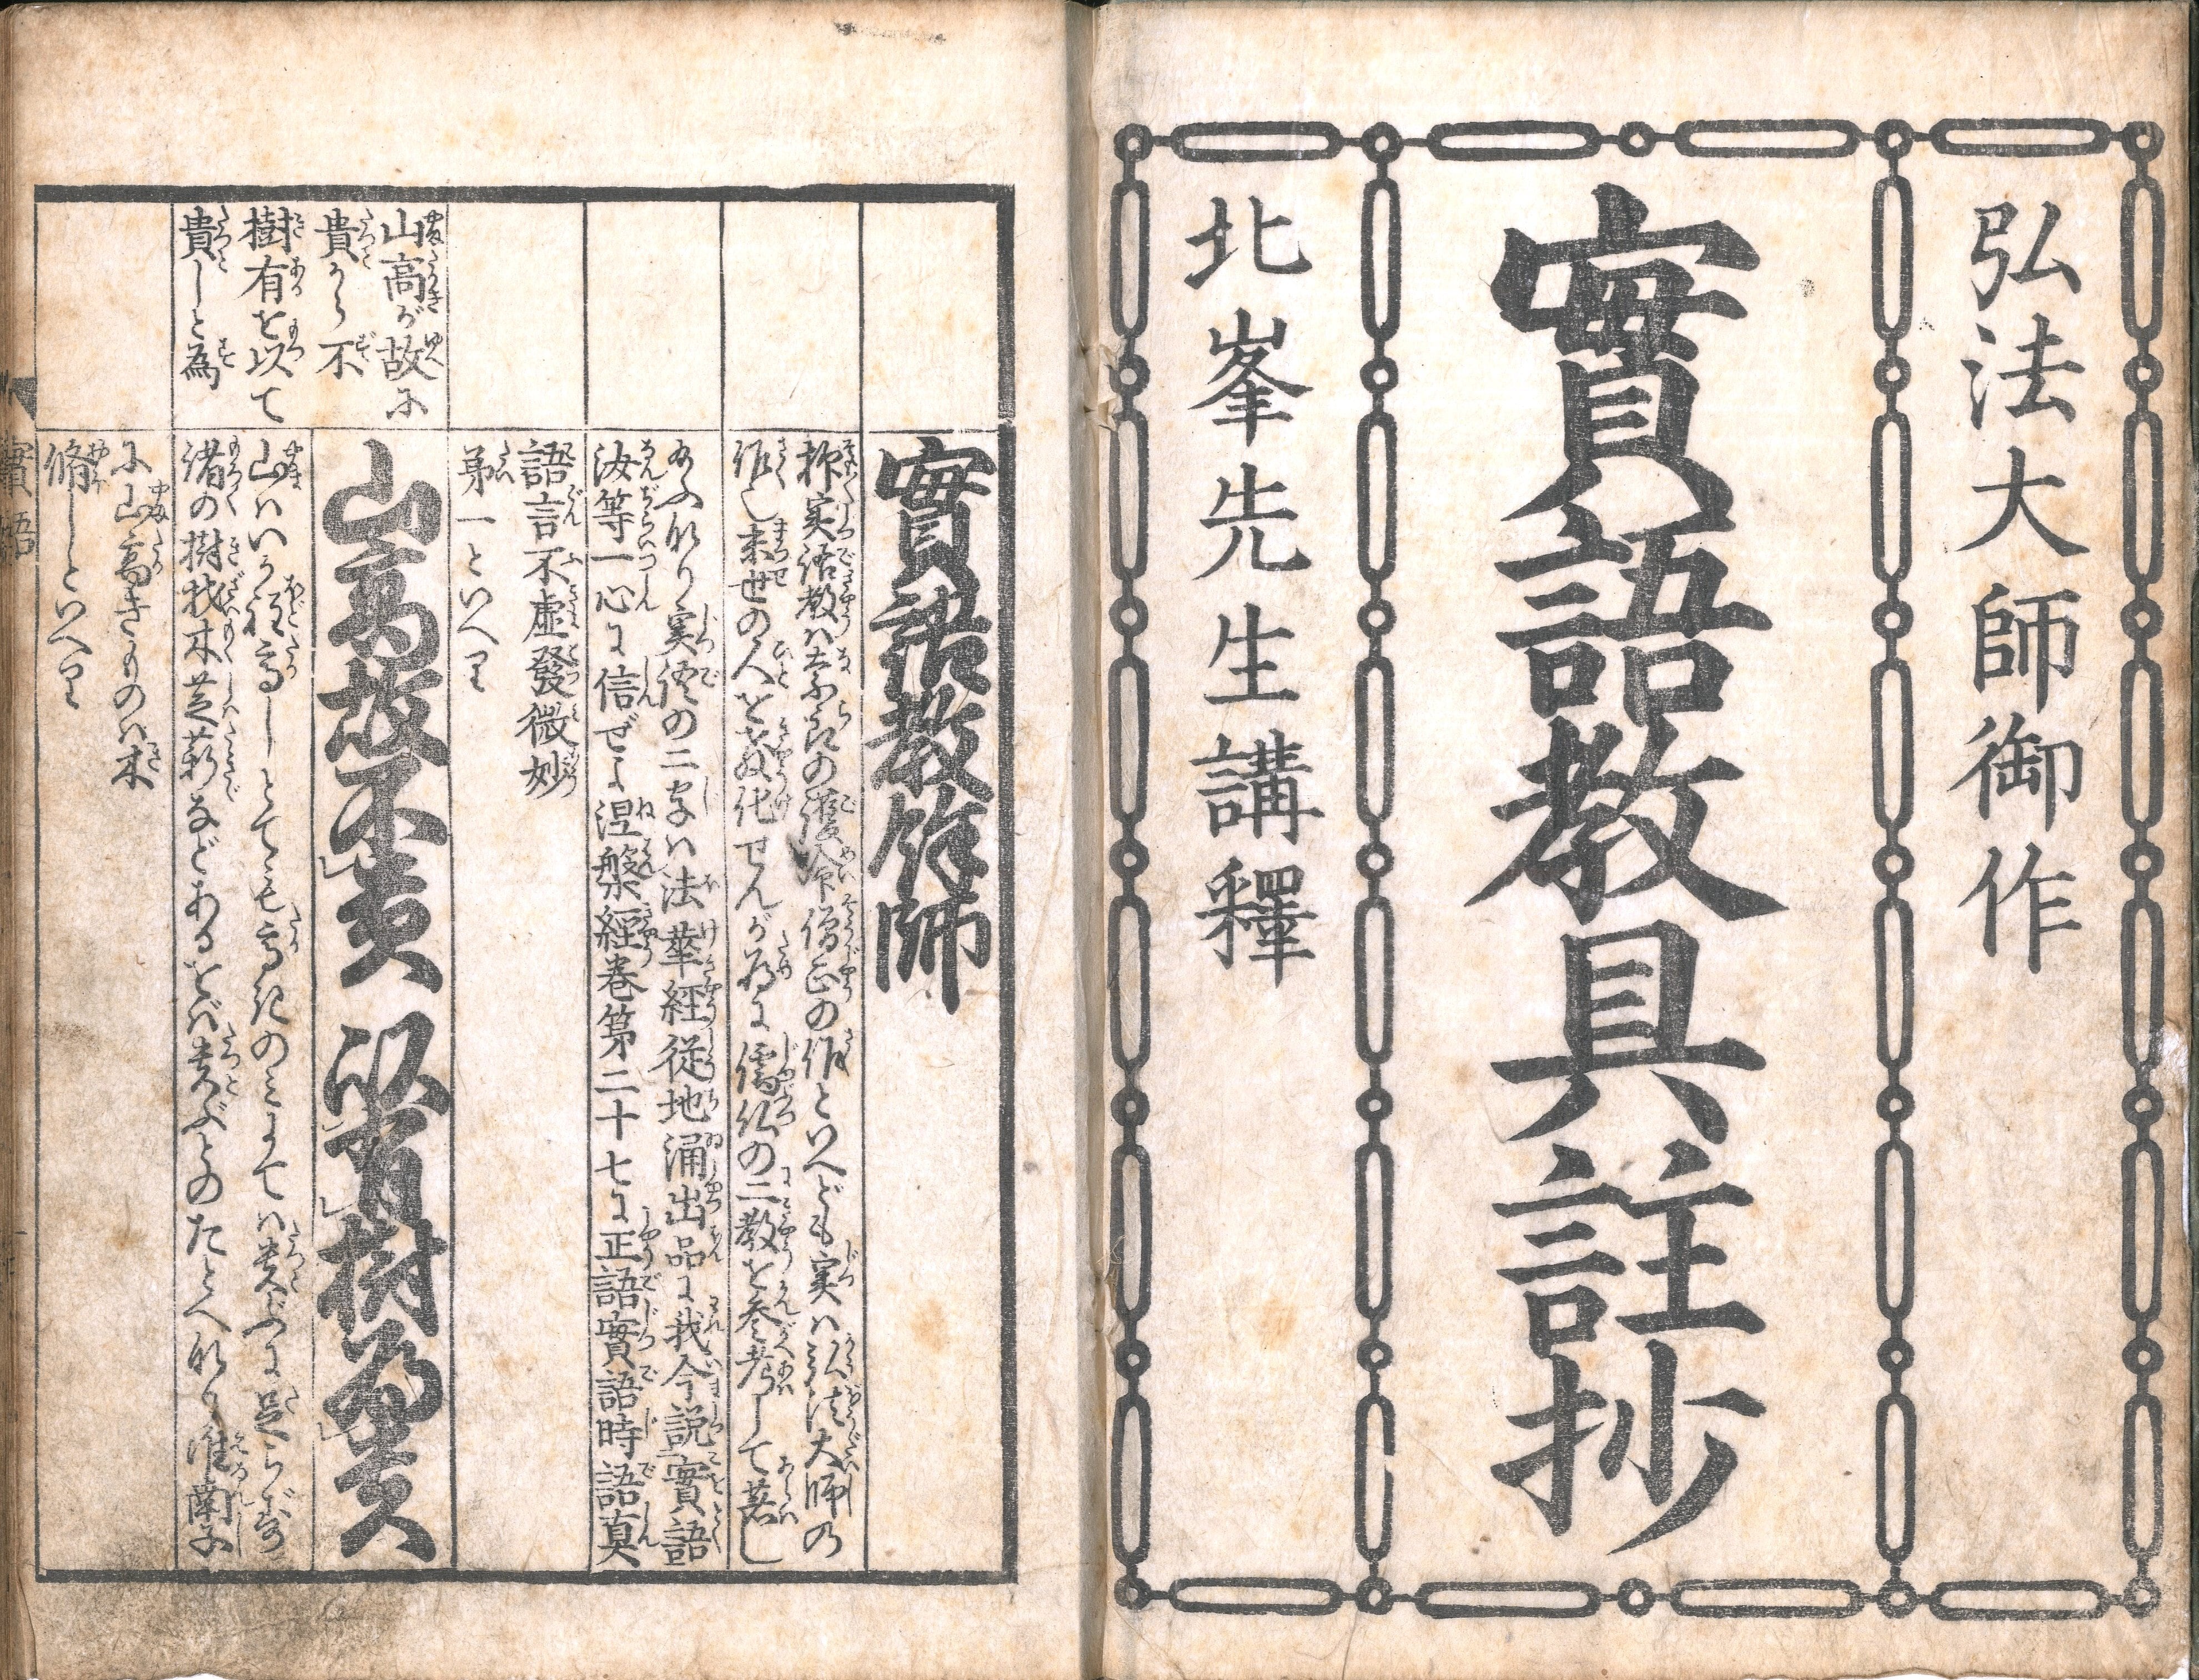 弘法大師御作
實語教具註抄
北峯先生講釋
實語教餘師
抑実語教ハ奈良の護命僧正の作といへども実ハ弘法大師の
作にし末世の人を教化せんが為に儒仏の二教を参考して著し
給ふなり実語の二字ハ法華経従地涌出品に我今説實語
汝等一心に信ぜよ涅槃経巻第二十七に正語實語時語真
語言不虚發微妙
第一といへり
山高が故に
貴から不
樹有を以て
貴しと為
山高故不貴 以有樹為貴
山ハいか程高しとても高きのミにてハ貴ぶに足らず
諸の樹材木芝薪などあるをバ貴ぶとのたとへなり淮南子
に山高きものハ木
脩しといへり
實語